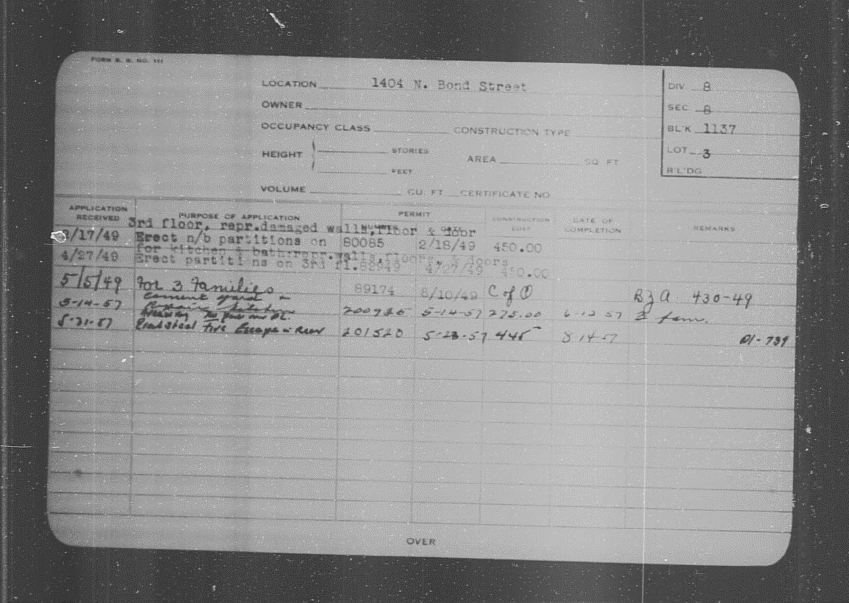 FORM B. B. NO. 111
LOCATION 1404 N. Bond Street
DIV 8
OWNER
SEC 8
OCCUPANCY CLASS CONSTRUCTION TYPE
BL'K 1137
HEIGHT STORIES AREA SQ FT
LOT 3
FEET
B'L'DG
VOLUME CU. FT. CERTIFICATE NO.
APPLICATION RECEIVED PURPOSE OF APPLICATION PERMIT CONSTRUCTION COST DATE OF COMPLETION REMARKS
3rd floor, repr.damaged walls, floor & door
/17/49 Erect n/b partitions on 80085 2/18/49 450.00
for kitchen & bath:repr.walls, floors, & doors
4/27/49 Erect partitions on 3rd fl. 82949 4/27/49 450.00
5/5/49 For 3 Families 89174 8/10/49 C of O BZA 430-49
cement yard
5-14-57 5-14-57 275.00 3 fam.
5-21-57 Steel Fire Escape in Rear 201520 5-23-57 445 8 14 57
OVER